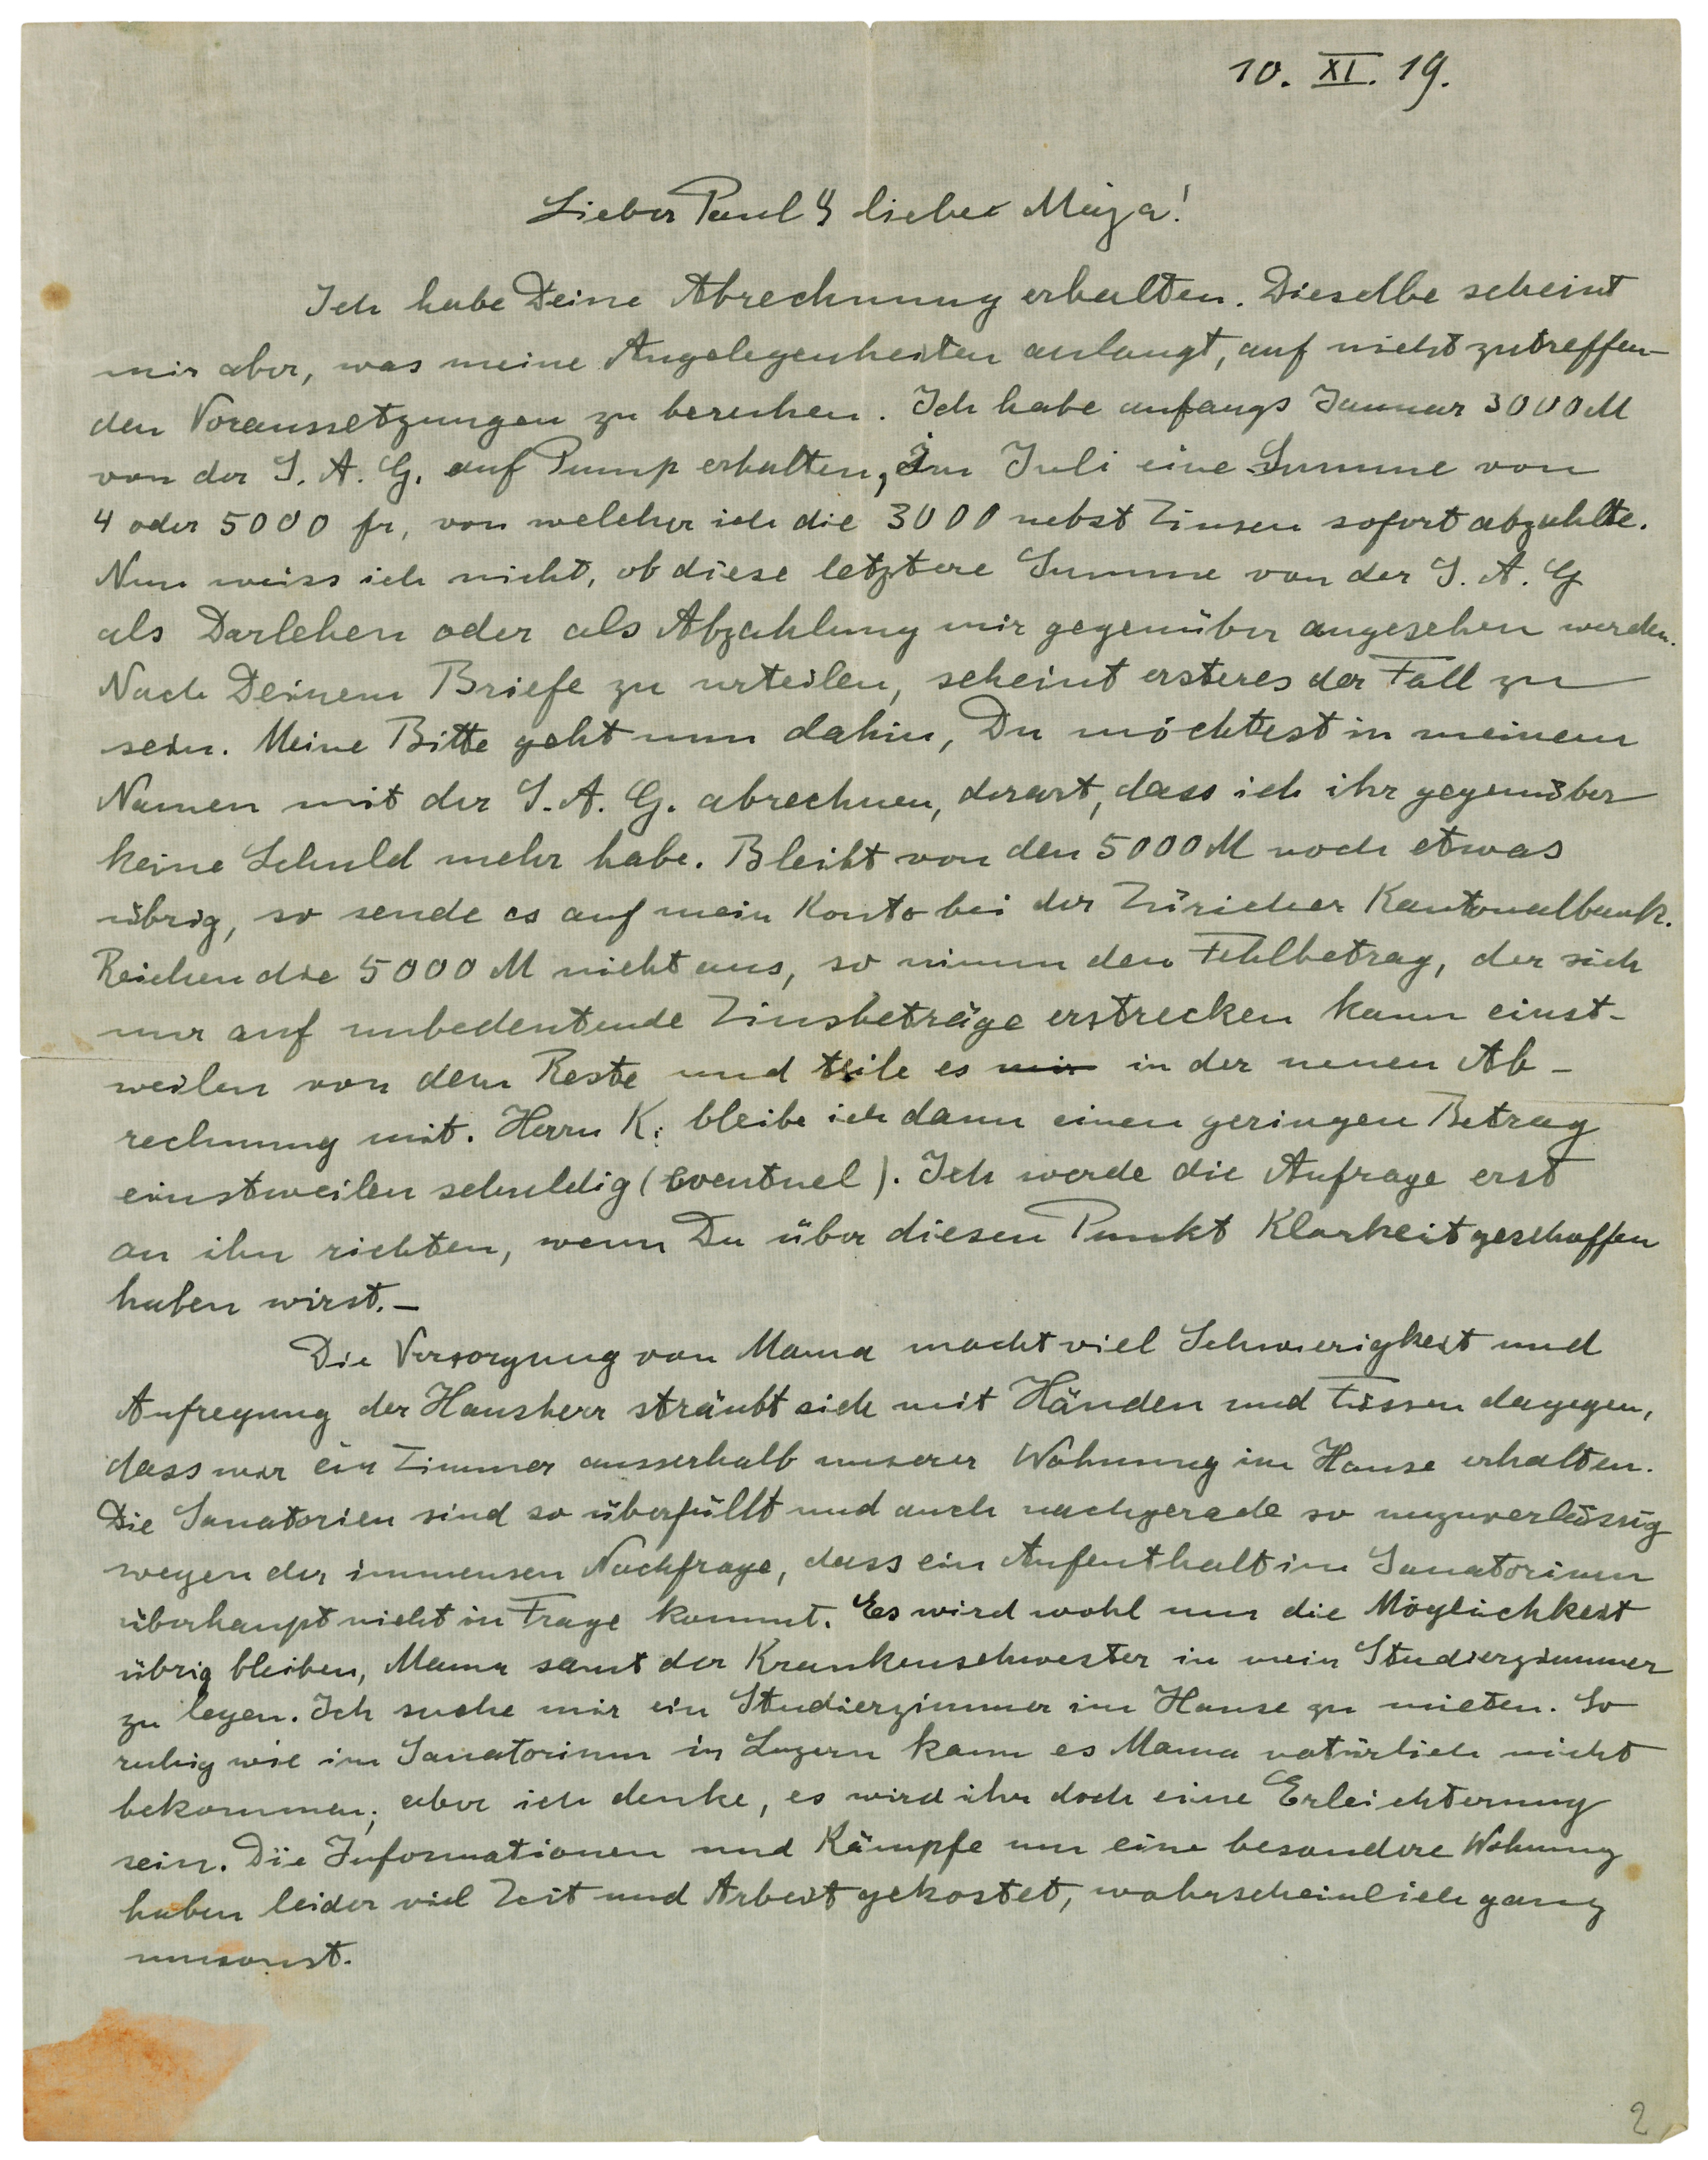 10. XI. 19.
Lieber Paul & liebe Maja!
Ich habe Deine Abrechnung erhalten. Dieselbe scheint
mir aber, was meine Angelegenheiten anlangt, auf nicht zutreffen-
den Voraussetzungen zu beruhen. Ich habe anfangs Januar 3000 M
von der S. A. G. auf Pump erhalten, im Juli eine Summe von
4 oder 5000 fr, von welcher ich die 3000 nebst Zinsen sofort abzahlte.
Nun weiss ich nicht, ob diese letztere Summe von der S. A. G
als Darlehen oder als Abzahlung mir gegenüber angesehen werden.
Nach Deinem Briefe zu urteilen, scheint ersteres der Fall zu
sein. Meine Bitte geht nun dahin, Du möchtest in meinem
Namen mit der S. A. G. abrechnen, derart, dass ich ihr gegenüber
keine Schuld mehr habe. Bleibt von den 5000 M noch etwas
übrig, so sende es auf mein Konto bei der Züricher Kantonalbank.
Reichen die 5000 M nicht aus, so nimm den Fehlbetrag, der sich
nur auf unbedeutende Zinsbeträge erstrecken kann einst-
weilen von dem Reste und teile es mir in der neuen Ab-
rechnung mit. Herrn K. bleibe ich dann einen geringen Betrag
einstweilen schuldig (eventuel). Ich werde die Anfrage erst
an ihn richten, wenn Du über diesen Punkt Klarheit geschaffen
haben wirst. –
Die Versorgung von Mama macht viel Schwierigkeit und
Aufregung der Hausherr sträubt sich mit Händen und Füssen dagegen,
dass wir ein Zimmer ausserhalb unserer Wohnung im Hause erhalten.
Die Sanatorien sind so überfüllt und auch nachgerade so unzuverlässig
wegen der immensen Nachfrage, dass ein Aufenthalt im Sanatorium
überhaupt nicht in Frage kommt. Es wird wohl nur die Möglichkeit
übrig bleiben, Mama samt der Krankenschwester in mein Studierzimmer
zu legen. Ich suche mir ein Studierzimmer im Hause zu mieten. So
ruhig wie im Sanatorium in Luzern kann es Mama natürlich nicht
bekommen; aber ich denke, es wird ihr doch eine Erleichterung
sein. Die Informationen und Kämpfe um eine besondere Wohnung
haben leider viel Zeit und Arbeit gekostet, wahrscheinlich ganz
umsonst.
2